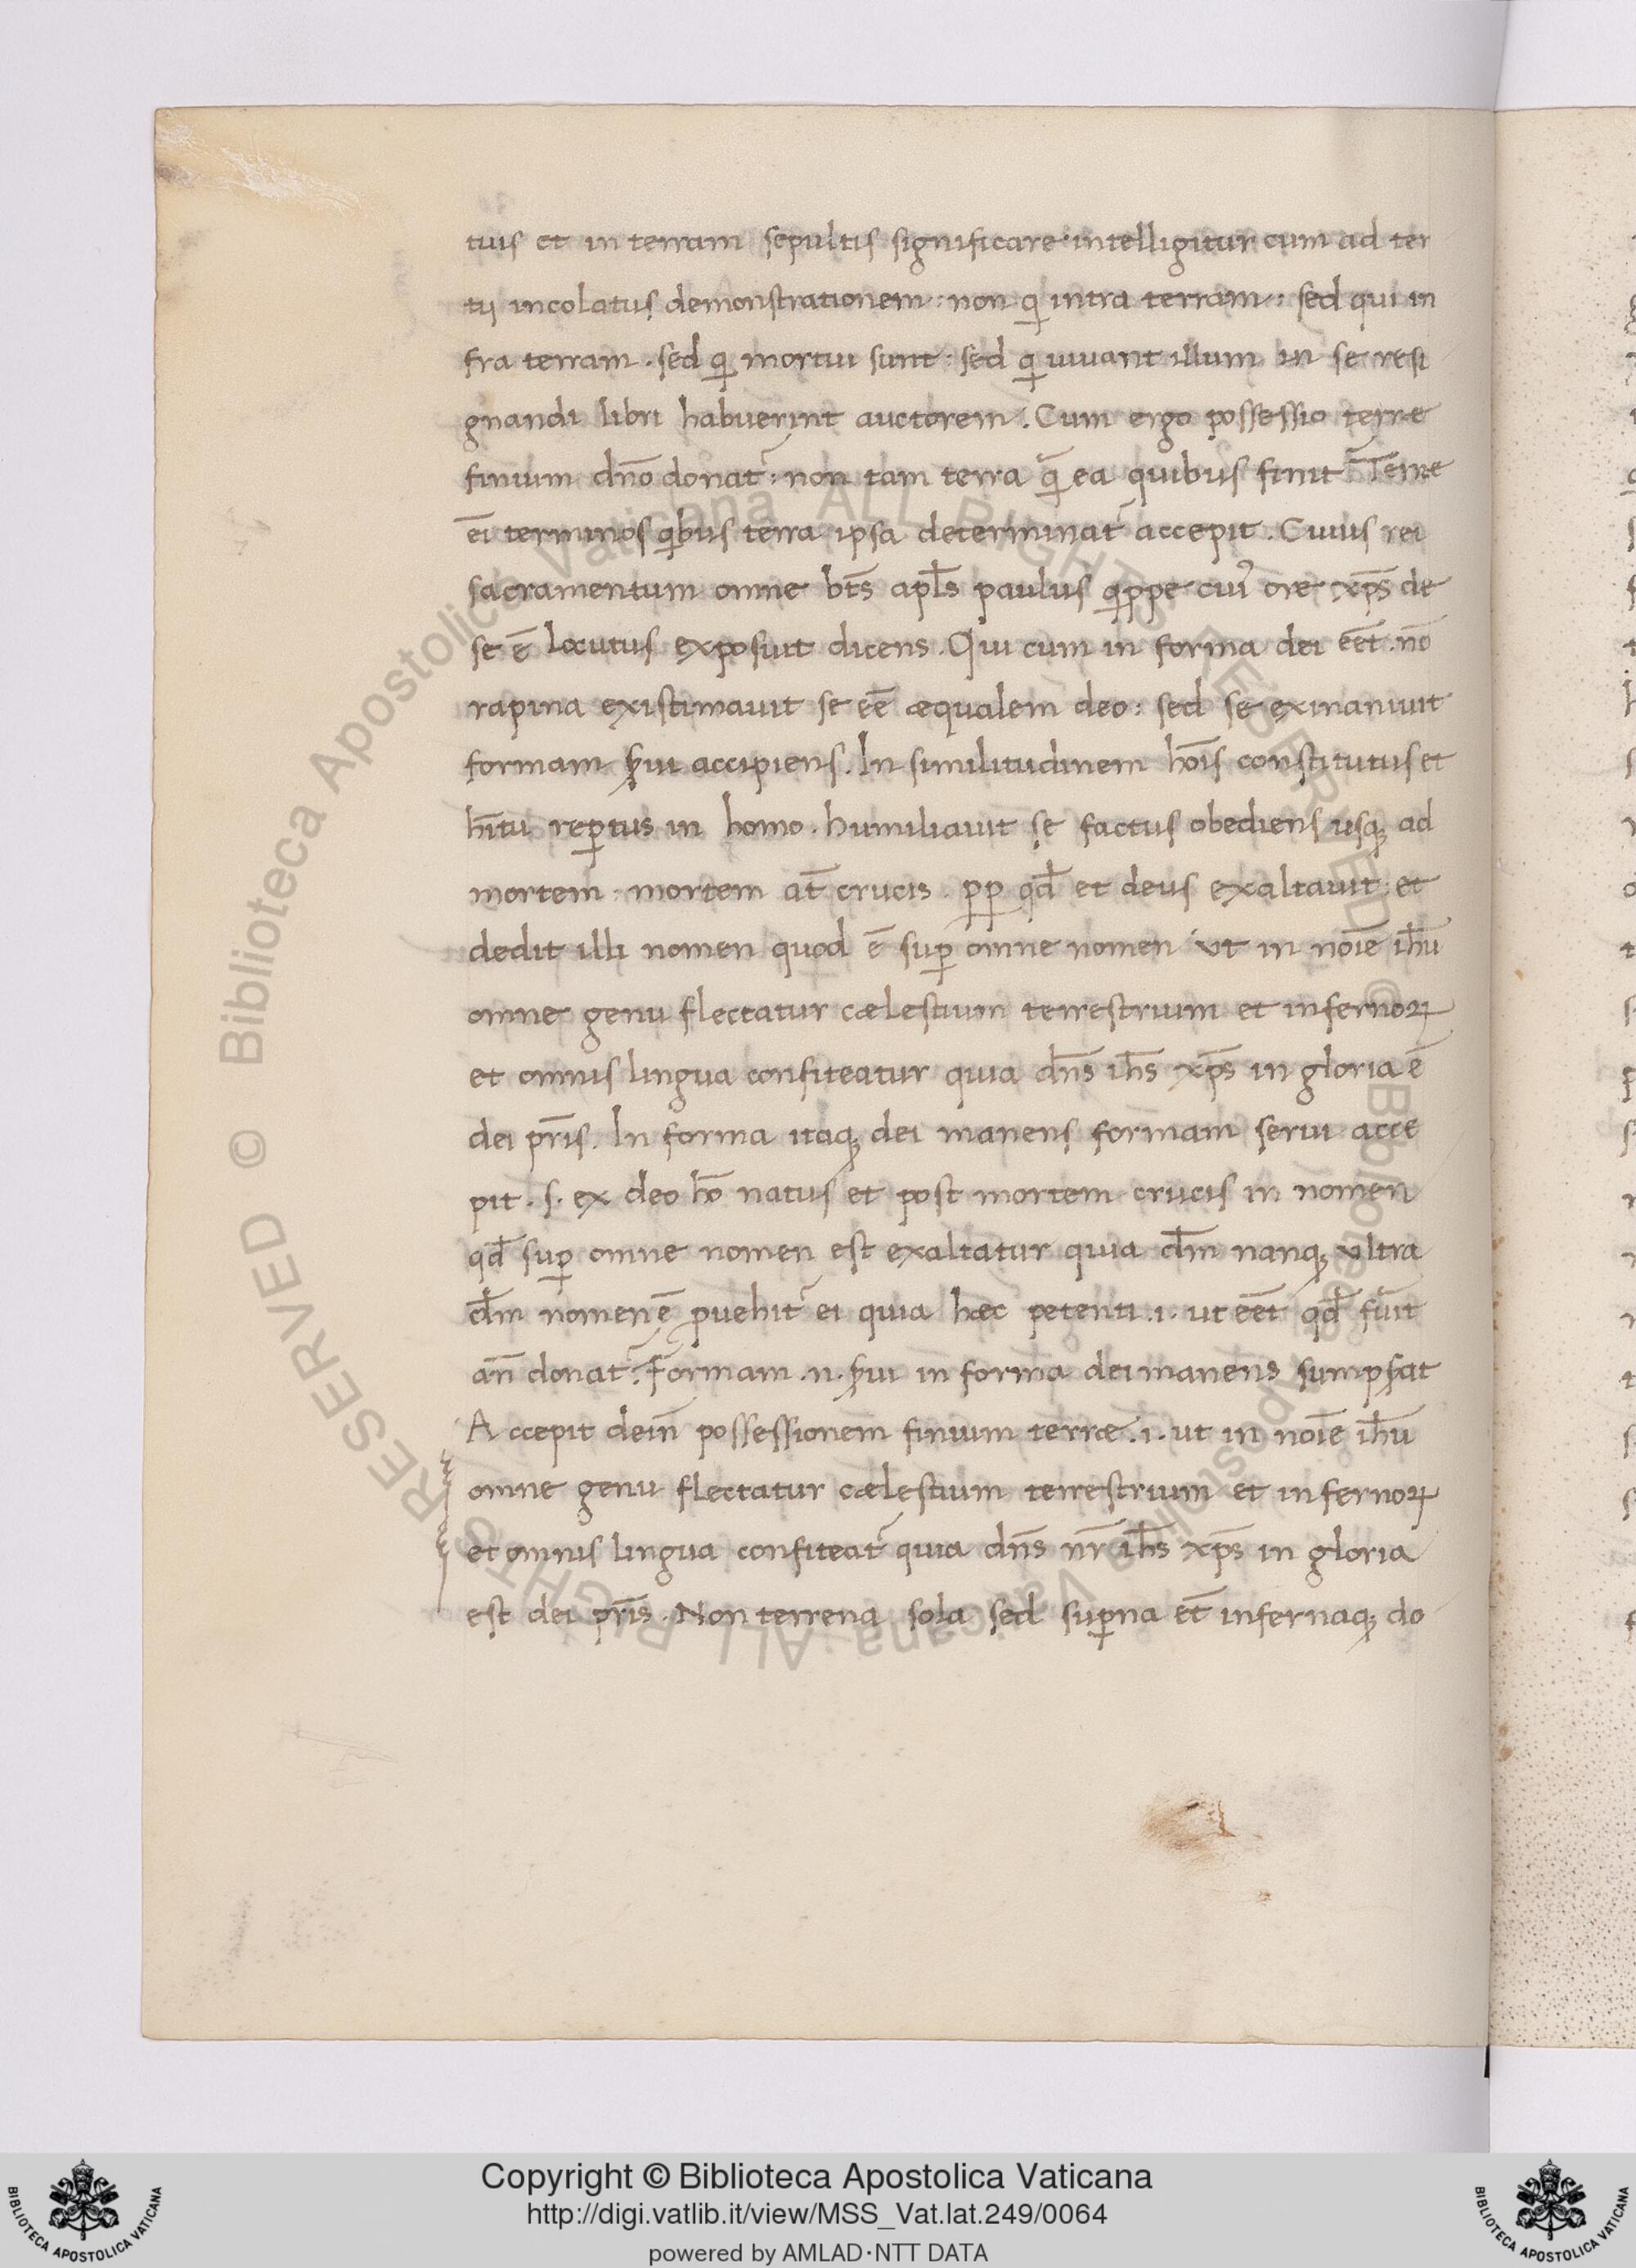 tuis et in terram sepultis significare intelligitur cum ad ter
tij incolatus demonstrationem: non qi intra terram: sed qui in
fra terram. sed qi mortui sunt: sed qi uiuant illum in se resi
gnandi libri habuerint auctorem. Cum ergo possessio terre
finium dn̄o donat᷑: non tam terra q̃ ea quibus finit᷑ Terre
em̄ terminos qibus terra ipsa determinat᷑ accepit. Cuius rei
sacramentum omne bt̄s apl̄s paulus qippe cuiꝰ ore xp̄s de
se ē locutus exposuit dicens. Qui cum in forma dei eēt. nō
rapina existimauit se eē æqualem deo: sed se exinaniuit
formam ẜui accipiens. In similitudinem hoīs constitutus et
hītu rep̱tus in homo. humiliauit se factus obediens usqꝫ ad
mortem: mortem at̄ crucis. pp̱ qd̄ et deus exaltauit: et
dedit illi nomen quod ē suꝑ omne nomen ut in noīe ih̄u
omne genu flectatur cælestium terrestrium et infernoꝝ
et omnis lingua confiteatur quia dn̄s ih̄s xp̄s in gloria ē
dei pr̄is. In forma itaqꝫ dei manens formam serui acce
pit. s. ex deo hō natus et post mortem crucis in nomen
qd̄ suꝑ omne nomen est exaltatur quia dm̄ nanqꝫ ultra
dm̄ nomen ē ꝓuehit᷑ ei quia hæc petenti .i. ut eēt qd̄ fuit
an̄ donat᷑. Formam .n. ẜui in forma dei manens sumpẜat
Accepit dein̄ possessionem finium terræ .i. ut in noīe ih̄u
omne genu flectatur cælestium terrestrium et infernoꝝ
et omnis lingua confiteat᷑ quia dn̄s nr̄ ih̄s xp̄s in gloria
est dei pr̄is. Non terrena sola sed suꝑna et̄ infernaqꝫ do
© Biblioteca Apostolica Vaticana ALL RIGHTS RESERVED © Biblioteca Apostolica Vaticana ALL RIGHTS RESERVED
Copyright © Biblioteca Apostolica Vaticana
http://digi.vatlib.it/view/MSS_Vat.lat.249/0064
powered by AMLAD·NTT DATA
BIBLIOTECA APOSTOLICA VATICANA
BIBLIOTECA APOSTOLICA VATICANA